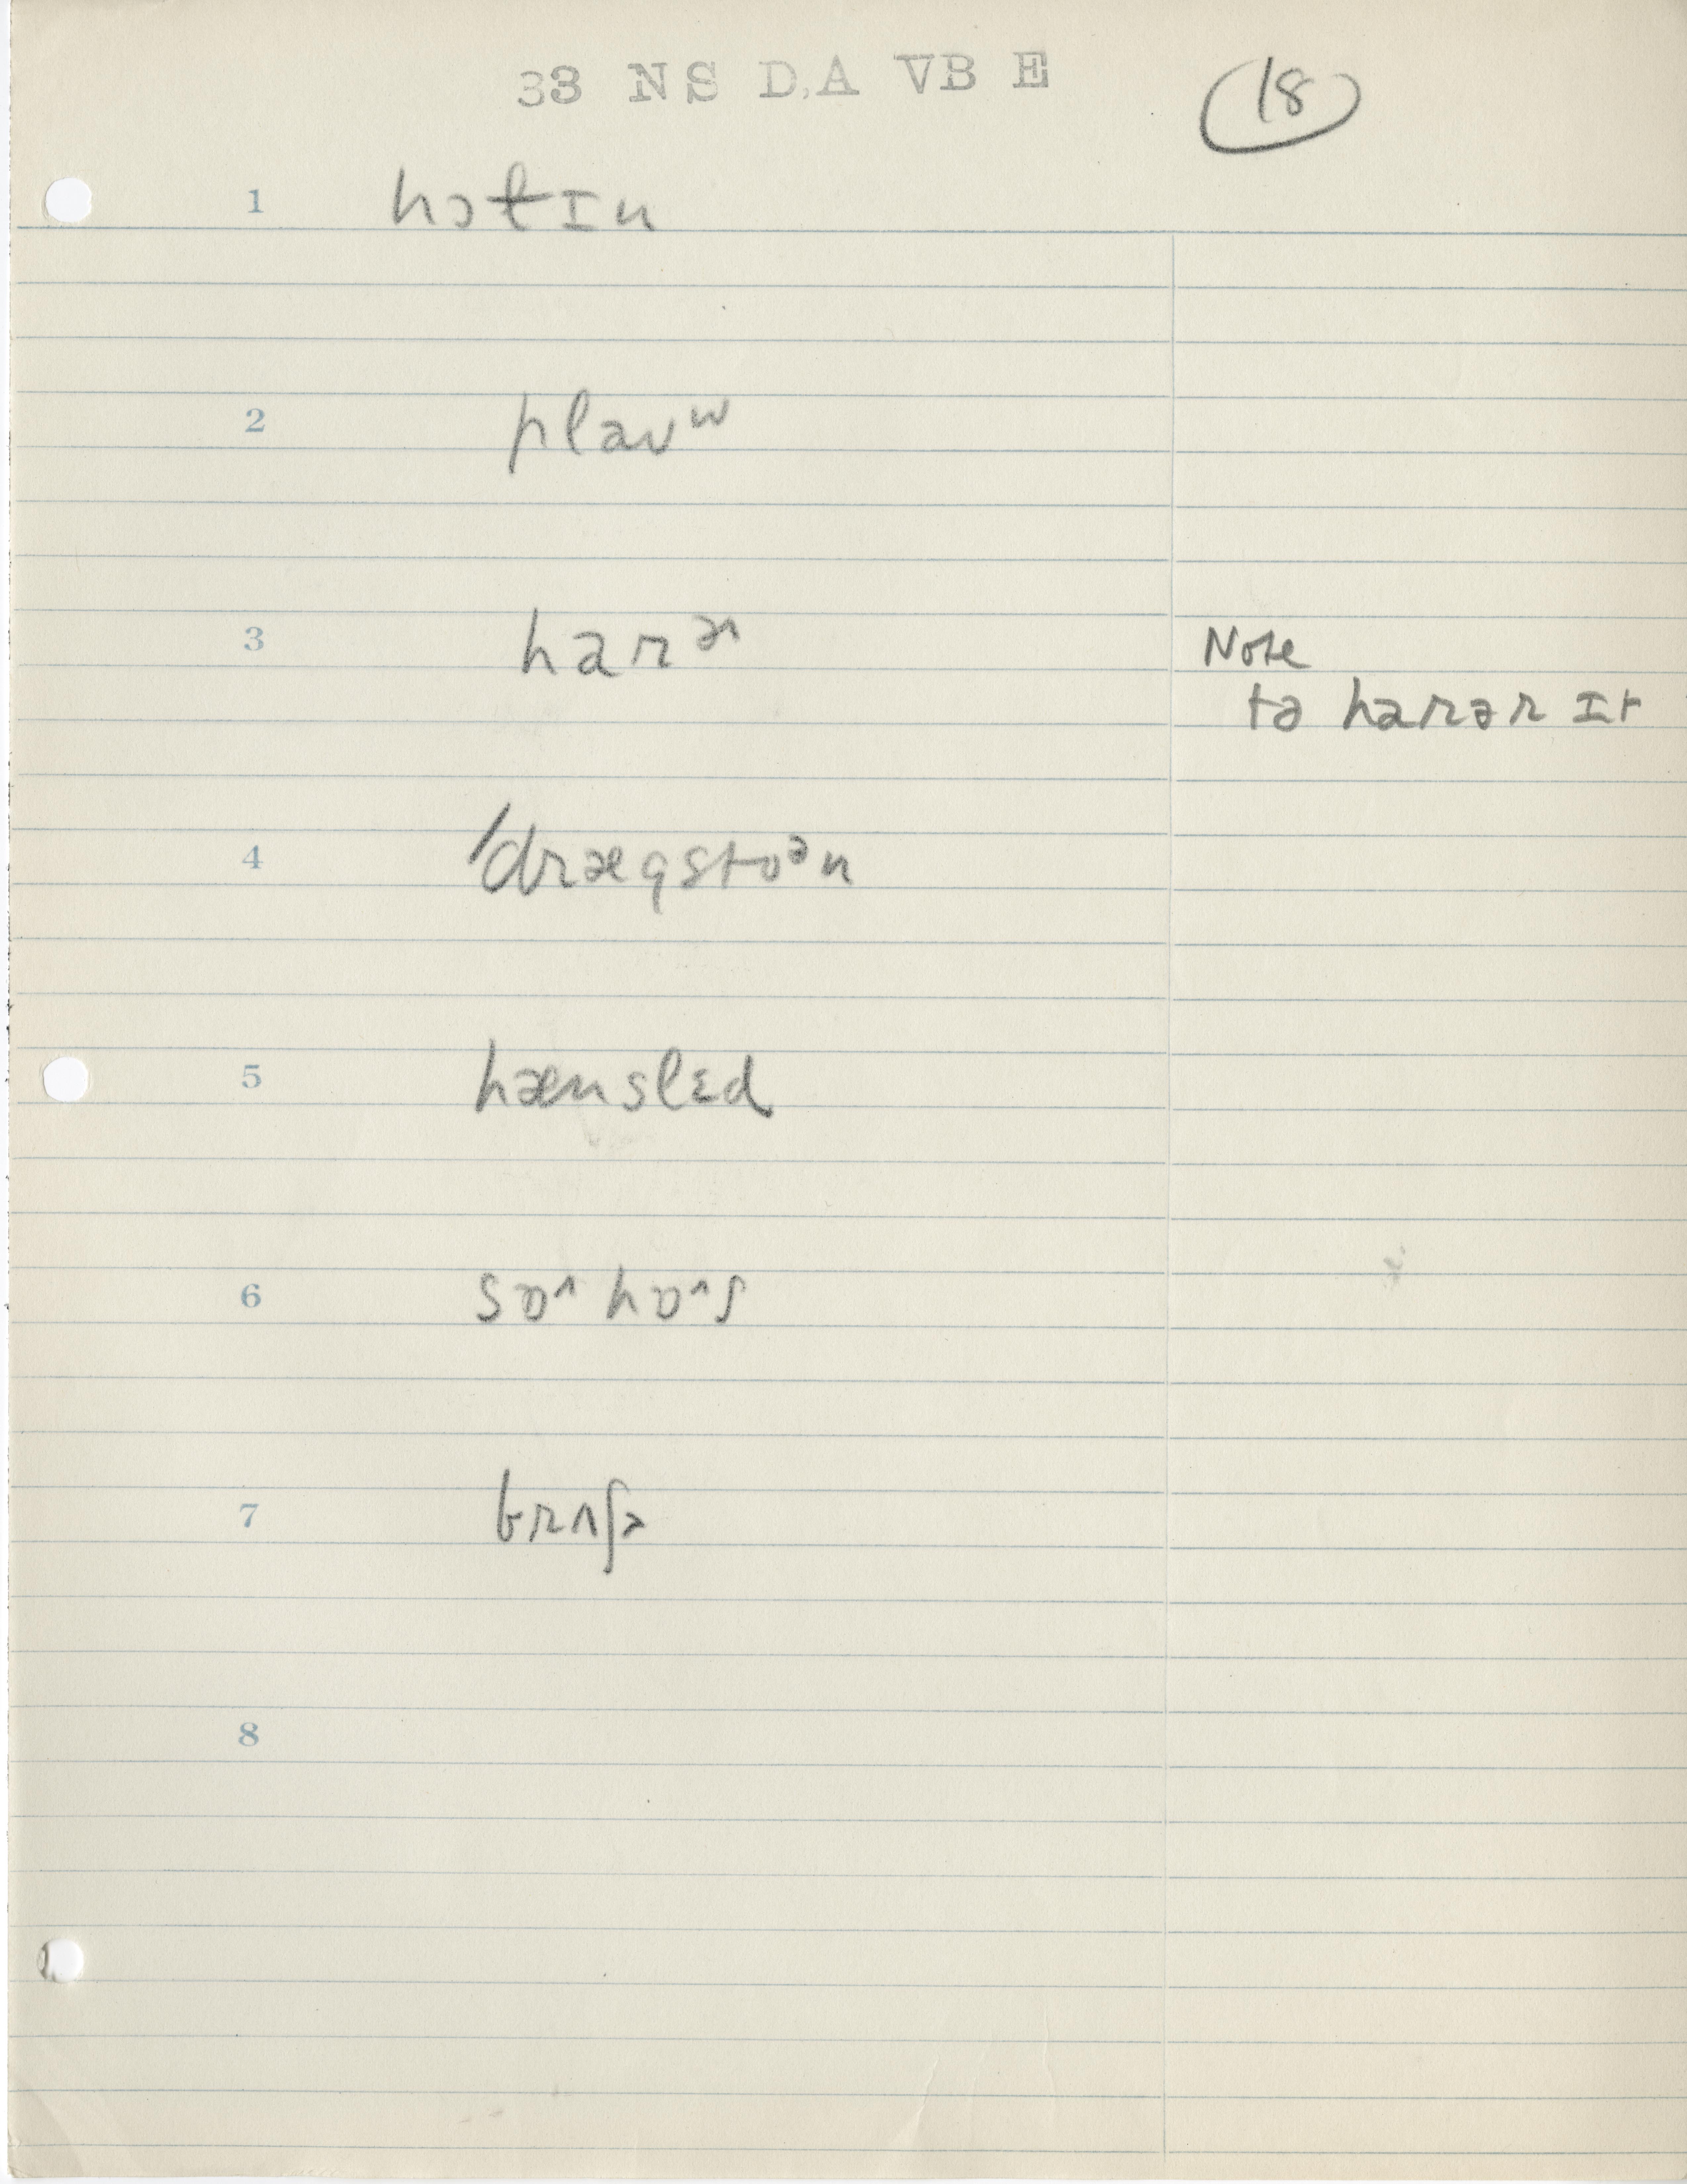 33 NS D.A VB E
18
1 nɔtɪn
2 plaʊʷ
3 harᵊʳ
Note
tə harər ɪt
4 ˈdrægstoᵊn
5 hænslɛd
6 sɒˆhɒˆs
7 brʌʃə
8